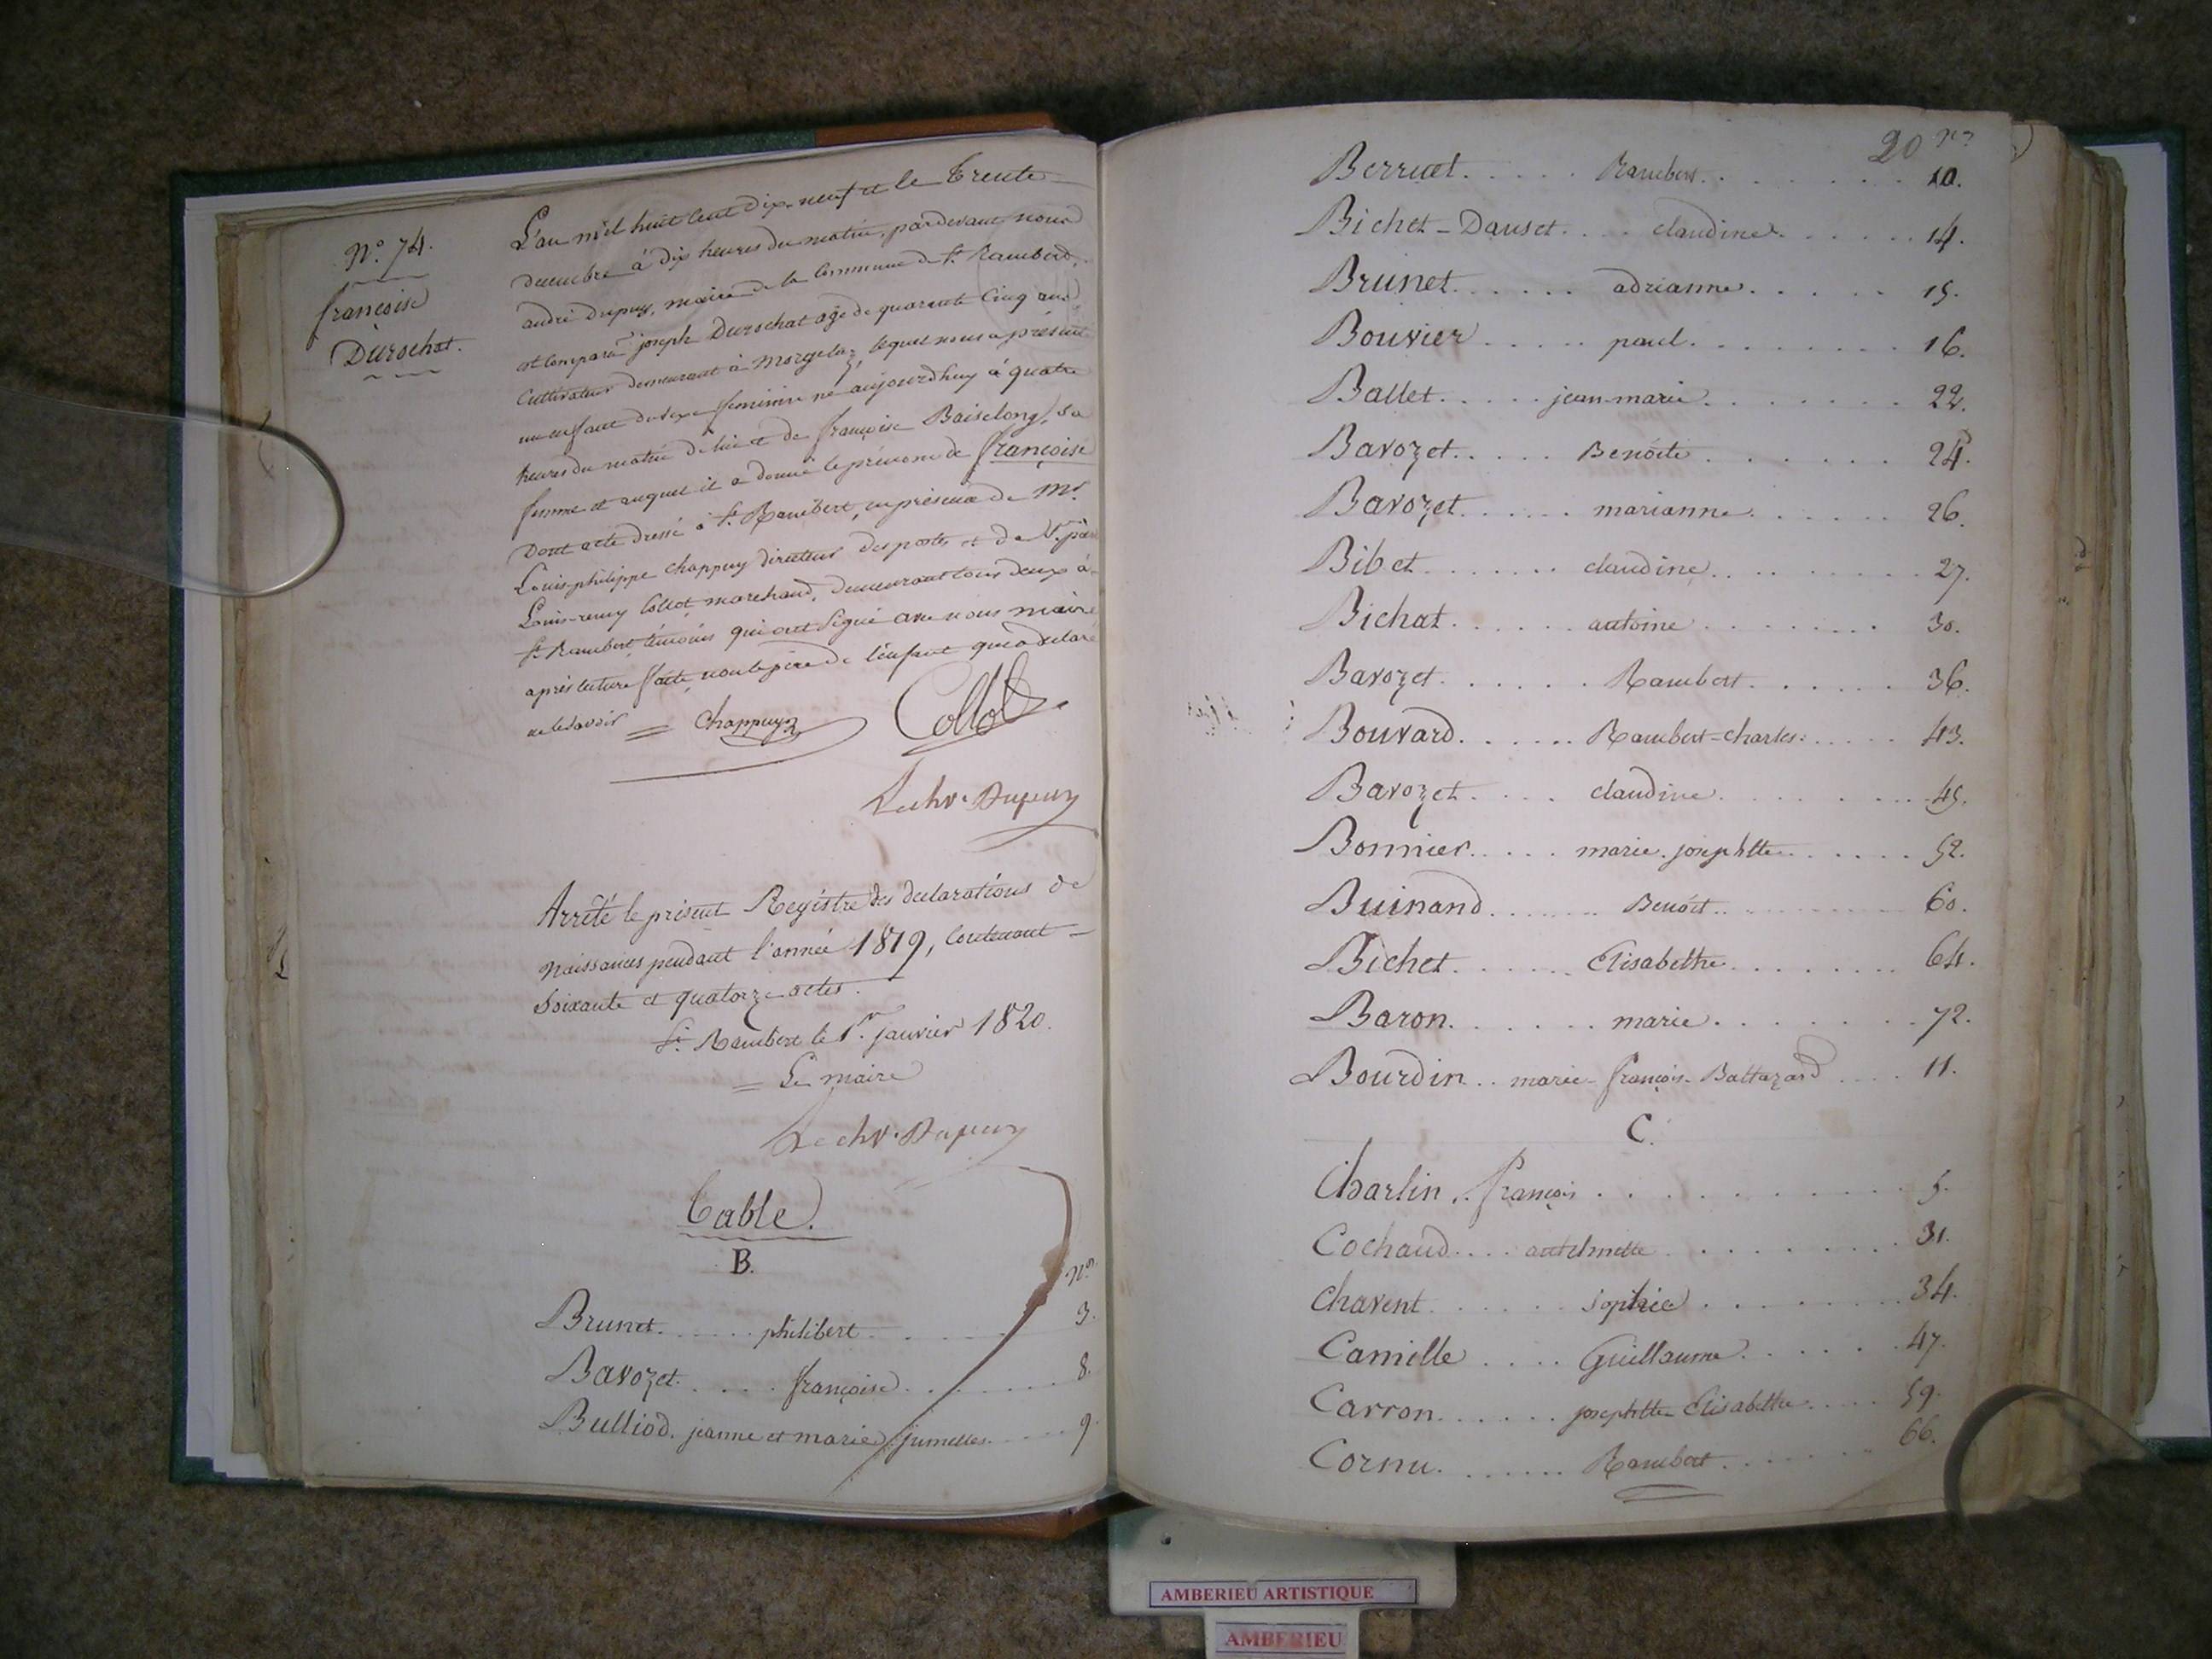 N.° 74.
françoise
Durochat.
L'an mil huit cent dix-neuf et le trente
decembre à dix heures du matin, pardevant nous
andré Dupuy, maire de la Commune de St. Rambert,
est comparu joseph Durochat agé de quarante cinq ans
Cultivateur demeurant à Morgelaz, lequel nous a présenté
un enfant du sexe feminin né aujourd'huy à quatre
heures du matin de lui et de françoise Baiselong, sa
femme et auquel il a donné le prénom de françoise
Dont acte dressé à St. Rambert, en présence de Mr.
Louis-philippe Chappuy directeur des postes et de Sr.
Louis-remy Collot, marchand, demeurant tous deux à
St. Rambert, témoins qui ont signé avec nous maire
après lecture faite, non le père de l'enfant qui a déclaré
ne le savoir = Chappuy Collot
Le chr. Dupuy
Arrêté le présent Registre des declarations de
naissances pendant l'année 1819, contenant
Soixante et quatorze actes.
St. Rambert le 1er. janvier 1820.
= Le maire
Le chr. Dupuy
Table.
B.
Nos.
Brunet. philibert. 3.
Bavozet. françoise. 8.
Bulliod. jeanne et marie, jumelles. 9.
20 Nos
Berruet. Rambert. 10.
Bichet-Dauset. claudine. 14.
Brunet. adrianne. 15.
Bouvier paul. 16.
Ballet. jean-marie. 22.
Bavozet. Benoite 24.
Bavozet. marianne. 26.
Bibet claudine. 27.
Bichat. antoine 30.
Bavozet. Rambert. 36.
Bouvard. Rambert-charles. 43.
Bavozet. claudine. 45.
Bonnier. marie-josephtte. 52.
Buinand. Benoit. 60.
Bichet. Elisabethe. 64.
Baron. marie. 72.
Bourdin. marie-françois-Baltazard 11.
C.
Charlin. françois. 5.
Cochaud. anthelmette. 31.
Chavent. Sophie 34.
Camille Guillaume. 47.
Carron. josephtte Elisabethe. 59.
Cornu. Rambert. 66.
AMBERIEU ARTISTIQUE
AMBERIEU